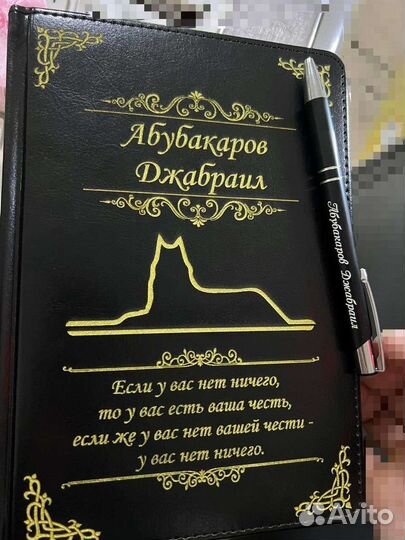 Абубакаров
Джабраил
Если у вас нет ничего,
то у вас есть ваша честь,
если же у вас нет вашей чести -
у вас нет ничего.
Абубакаров Джабраил
Avito